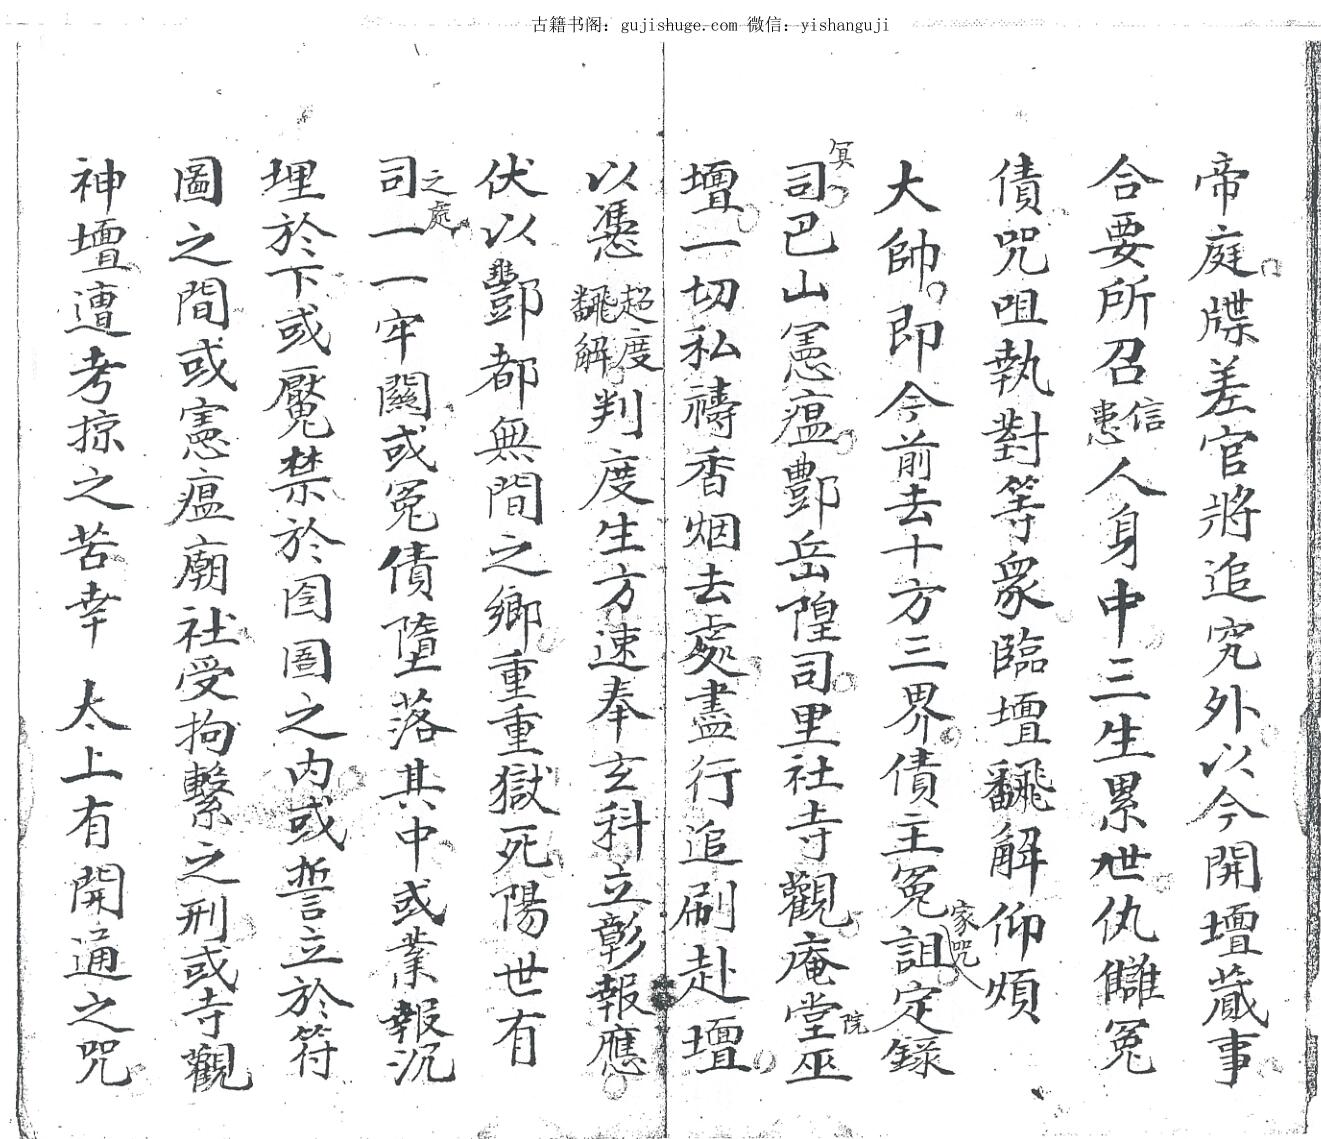 古籍书阁：gujishuge.com 微信：yishanguji
帝庭牒差官將追究外以今開壇蕆事
合要所召信患人身中三生累世仇讎冤
債咒咀執對等眾臨壇飜解仰煩
大帥即今前去十方三界債主冤家咒詛定錄
冥司巴山憲瘟酆岳隍司里社寺觀庵堂院巫
壇一切私禱香烟去處盡行追刷赴壇
以憑超度飜解判度生方速奉玄科立彰報應
伏以酆都無間之鄉重重獄死陽世有
司之處一一牢關或冤債墮落其中或業報沉
埋於下或魘禁於囹圄之内或誓立於符
圖之間或憲瘟廟社受拘繫之刑或寺觀
神壇遭考掠之苦幸 太上有開通之咒